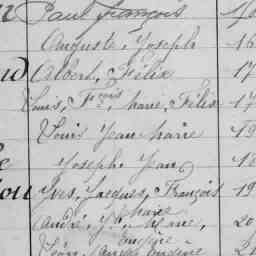 Paul François
Auguste, Joseph 16
Albert, Félix 17
Louis, Fçois, Marie, Félix 17
Louis Jean Marie 19
Joseph, Jean 18
Yves, Jacques, François 19
Marie
André, Yves, Pierre, 20
Eugène
Léon,